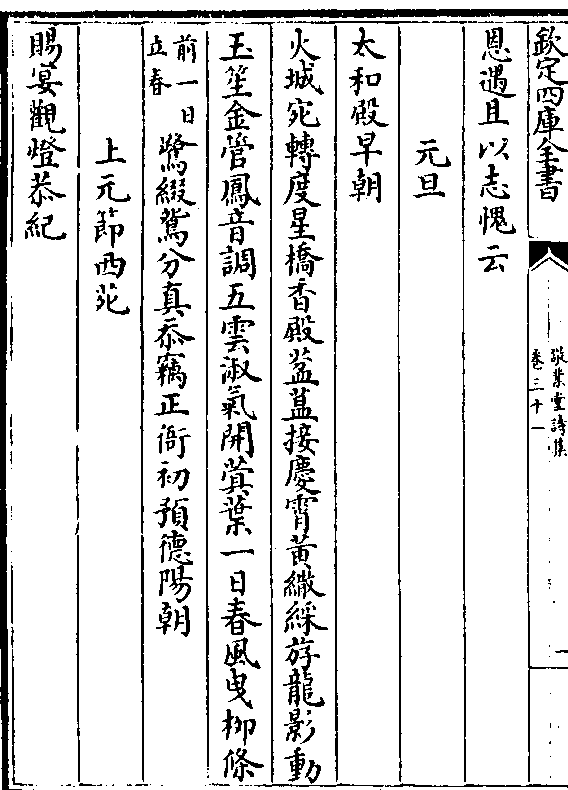 欽定四庫全書
敬業堂詩集
卷三十一
一
恩遇且以志愧云
元旦
太和殿早朝
火城宛轉度星橋香殿葢葢接慶霄黃繖綵斿龍影動
玉笙金管鳳音調五雲淑氣開蓂葉一日春風曳柳條
前一日
立春
鷺綴鴛分真忝竊正衙初預德陽朝
上元節西苑
賜宴觀燈恭紀